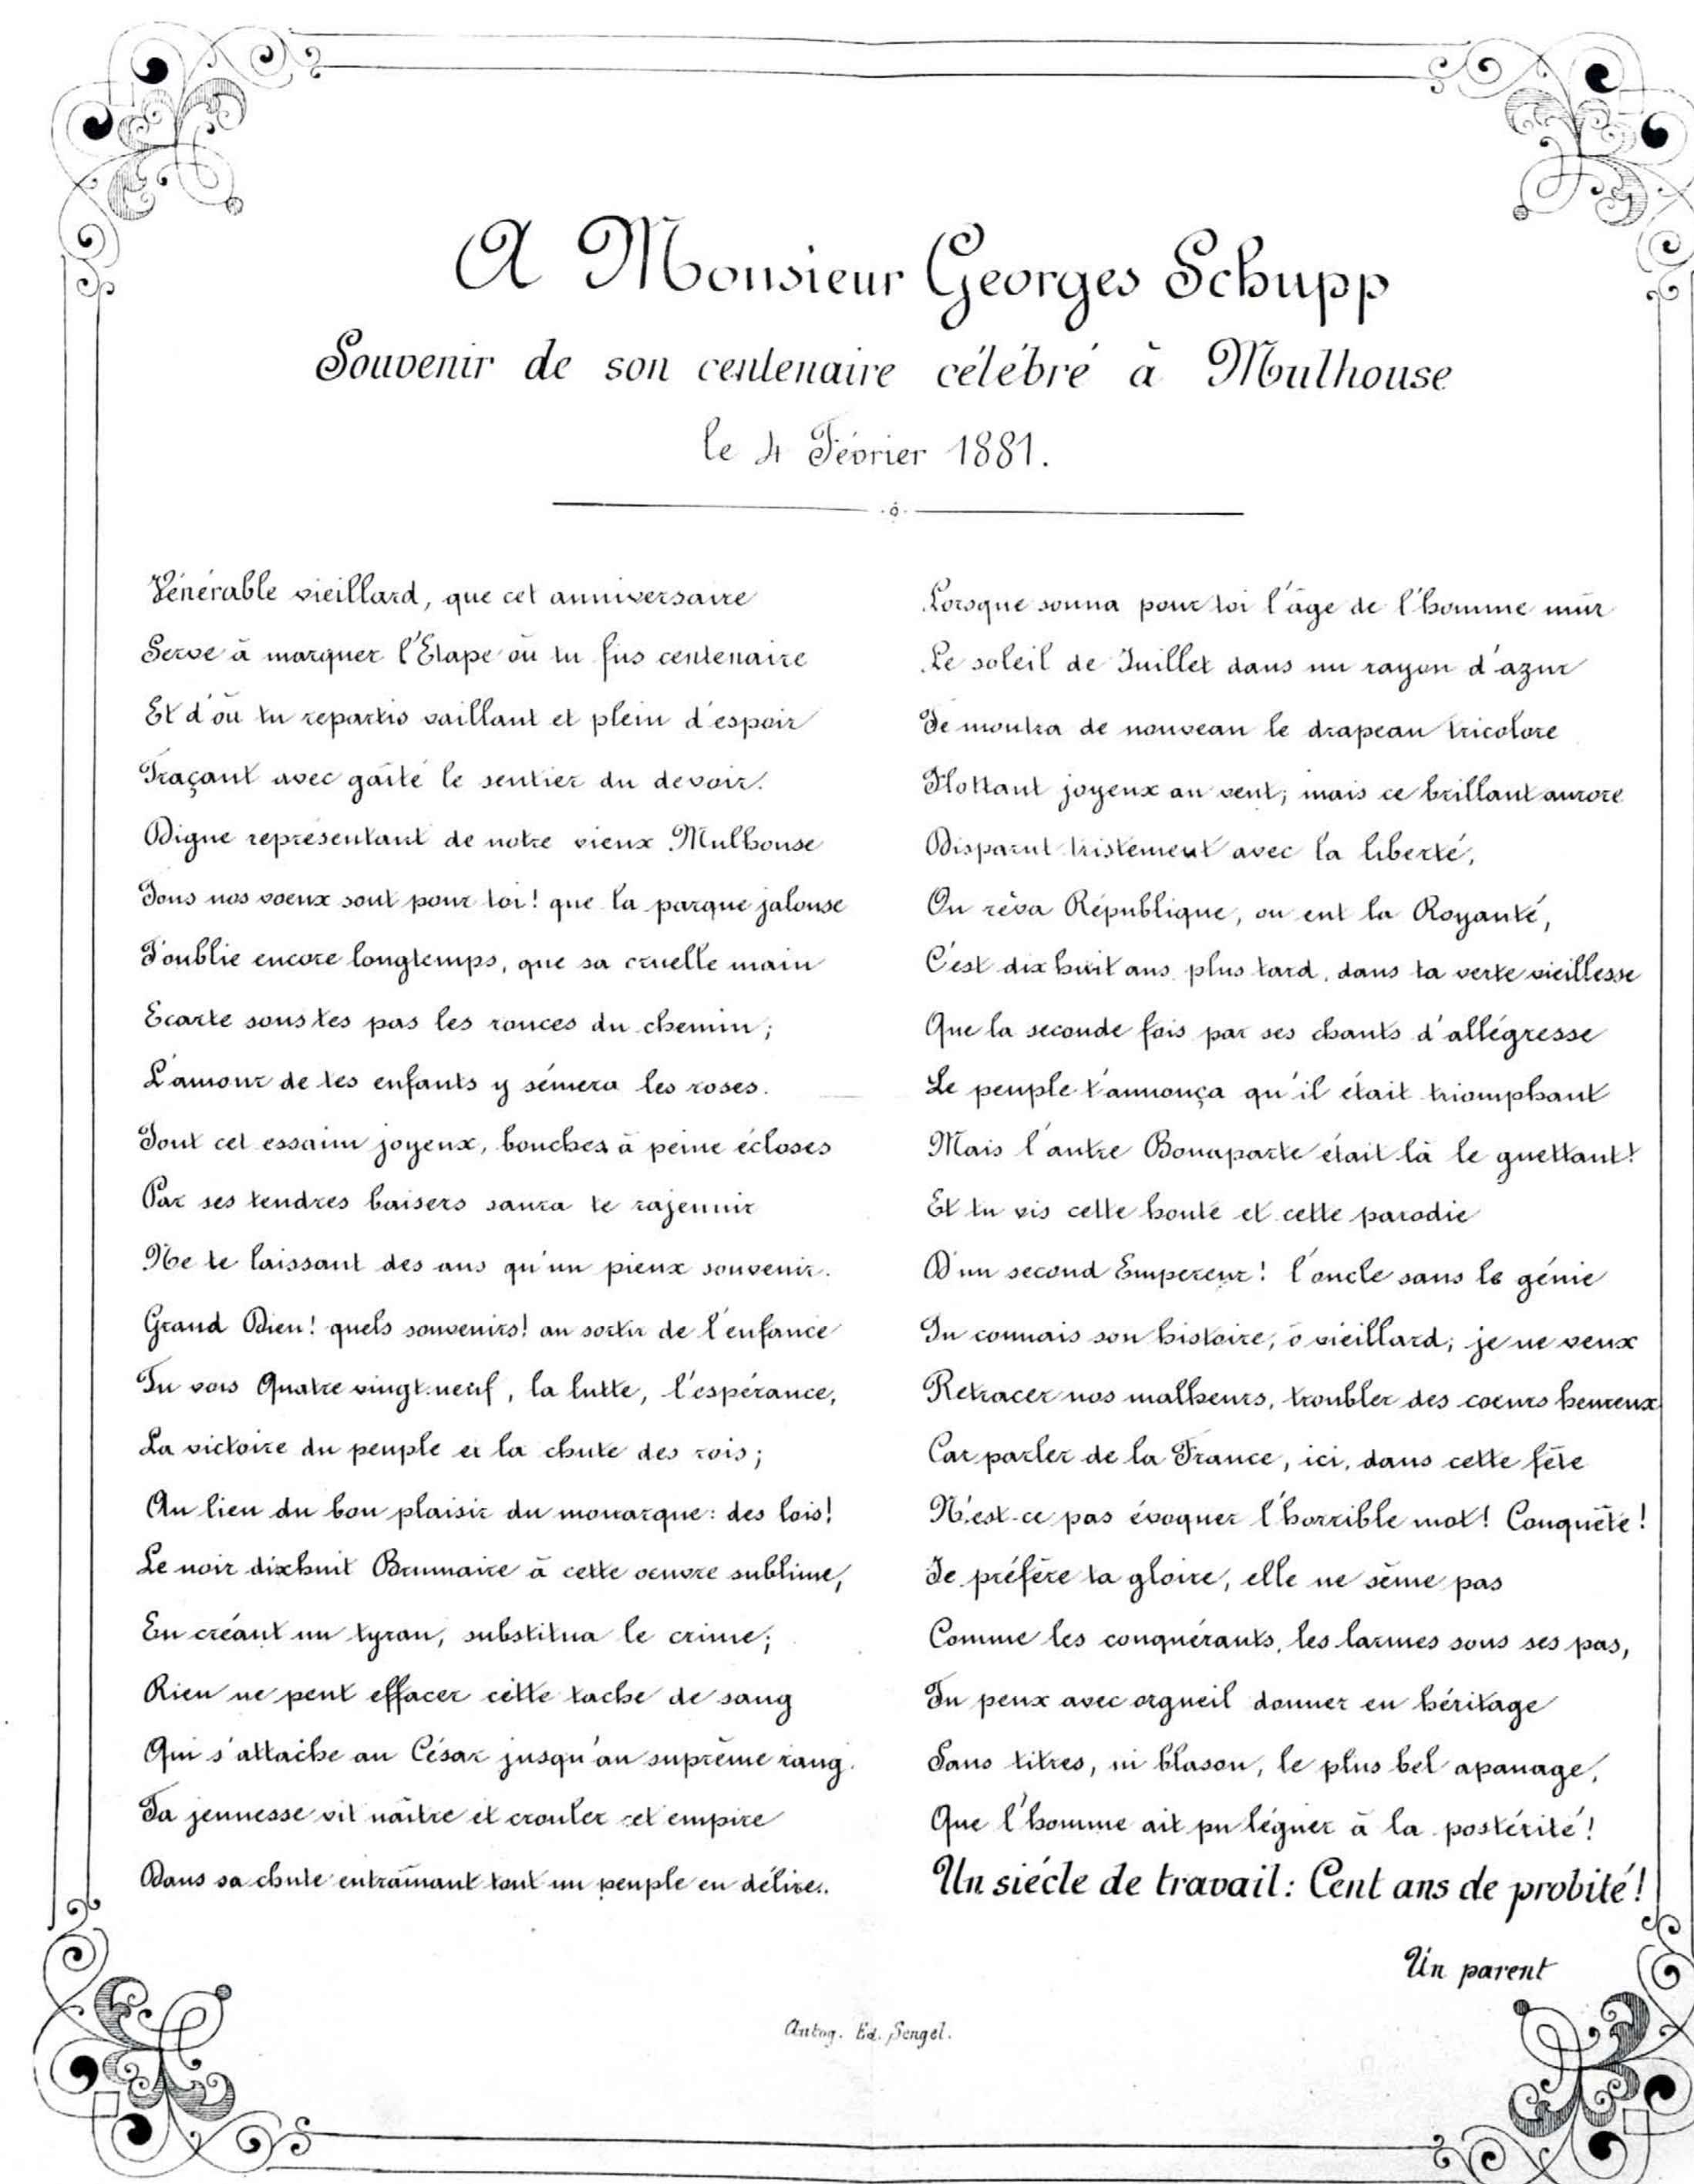 A Monsieur Georges Schupp
Souvenir de son centenaire célébré à Mulhouse
le 4 Février 1881.
Vénérable vieillard, que cet anniversaire
Serve à marquer l'Etape où tu fus centenaire
Et d'où tu repartis vaillant et plein d'espoir
Traçant avec gaîté le sentier du devoir.
Digne représentant de notre vieux Mulhouse
Tous nos voeux sont pour toi! que la parque jalouse
T'oublie encore longtemps, que sa cruelle main
Ecarte sous tes pas les ronces du chemin;
L'amour de tes enfants y sèmera les roses.
Tout cet essaim joyeux, bouches à peine écloses
Par ses tendres baisers saura te rajeunir
Ne te laissant des ans qu'un pieux souvenir.
Grand Dieu! quels souvenirs! au sortir de l'enfance
Tu vois Quatre vingt-neuf, la lutte, l'espérance,
La victoire du peuple et la chute des rois;
Au lieu du bon plaisir du monarque: des lois!
Le noir dixhuit Brumaire à cette oeuvre sublime,
En créant un tyran, substitua le crime;
Rien ne peut effacer cette tache de sang
Qui s'attache au César jusqu'au suprême rang.
Ta jeunesse vit naître et crouler cet empire
Dans sa chute entraînant tout un peuple en délire.
Lorsque sonna pour toi l'âge de l'homme mûr
Le soleil de Juillet dans un rayon d'azur
Te montra de nouveau le drapeau tricolore
Flottant joyeux au vent; mais ce brillant aurore
Disparut tristement avec la liberté,
On rêva République, on eut la Royauté,
C'est dix huit ans plus tard, dans ta verte vieillesse
Que la seconde fois par ses chants d'allégresse
Le peuple t'annonça qu'il était triomphant
Mais l'autre Bonaparte était là le guettant!
Et tu vis cette honte et cette parodie
D'un second Empereur! l'oncle sans le génie
Tu connais son histoire, ô vieillard; je ne veux
Retracer nos malheurs, troubler des coeurs heureux
Car parler de la France, ici, dans cette fête
N'est-ce pas évoquer l'horrible mot! Conquête!
Je préfère ta gloire, elle ne sème pas
Comme les conquérants, les larmes sous ses pas,
Tu peux avec orgueil donner en héritage
Sans titres, ni blason, le plus bel apanage,
Que l'homme ait pu léguer à la postérité!
Un siècle de travail: Cent ans de probité!
Un parent
Autog. Ed. Sengel.